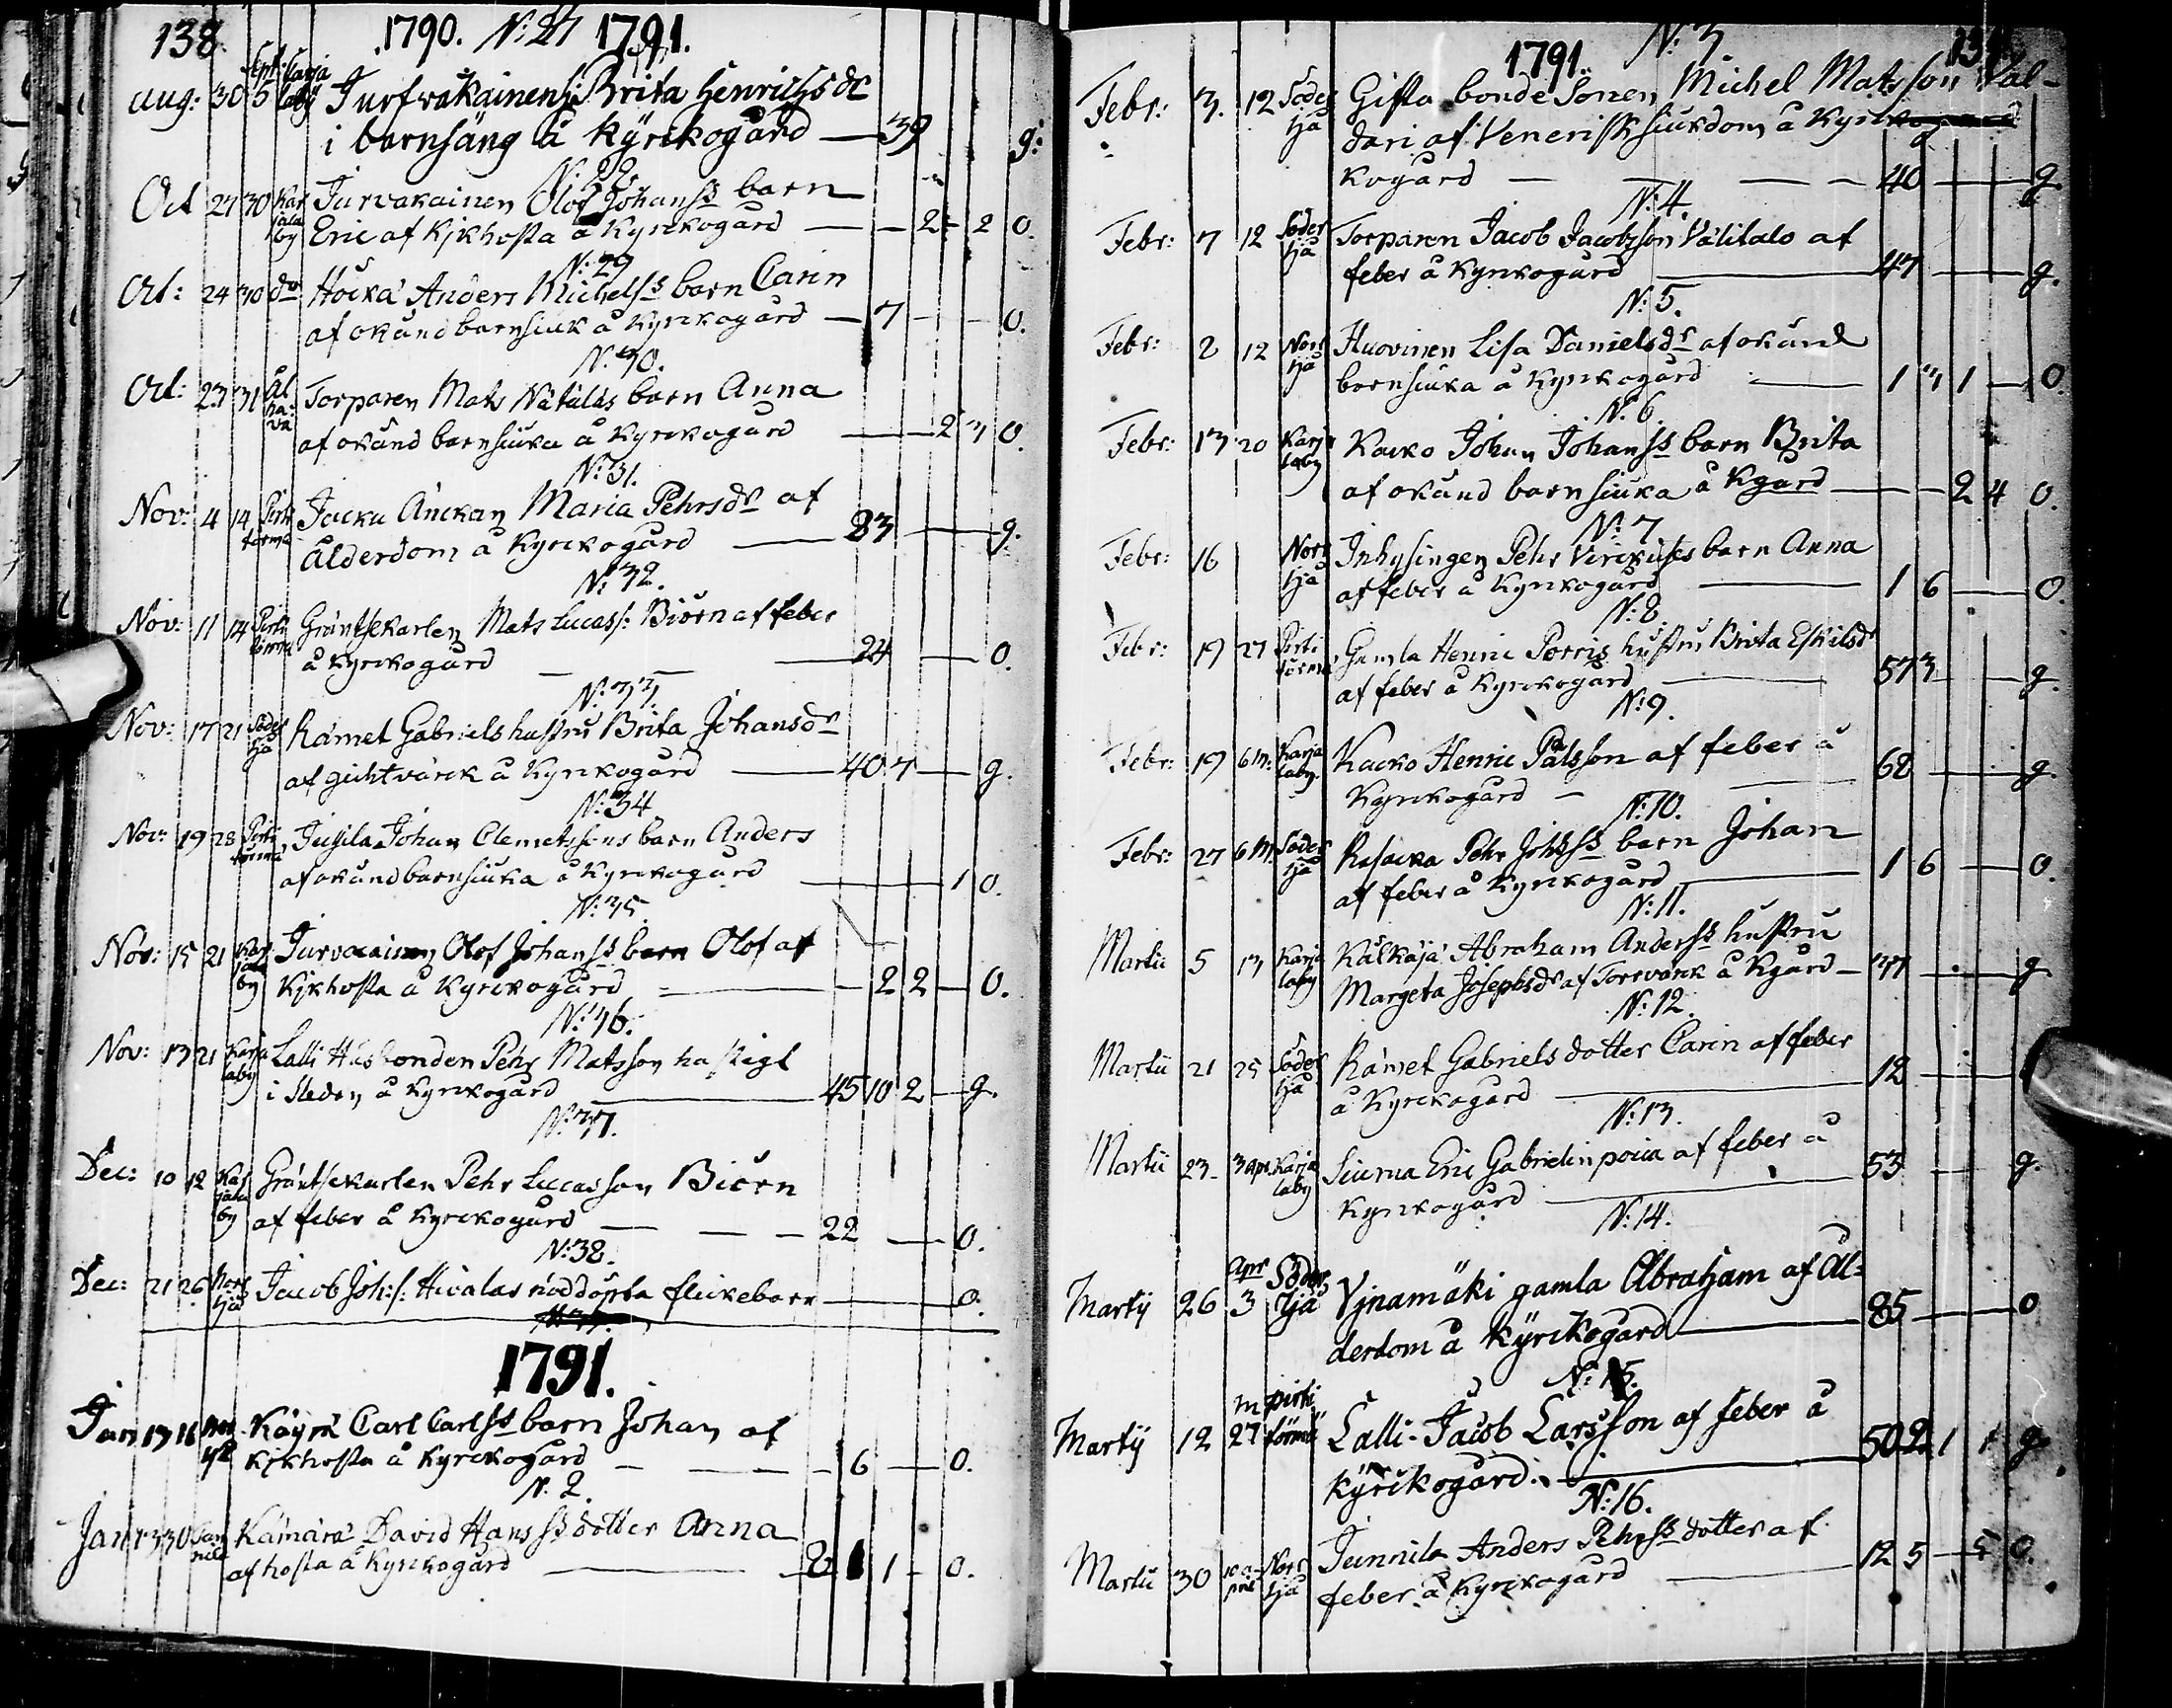 138. 1790. N:27 1791.
Aug: 30 Sept: 5 Karja laby Jurfvakainens: Brita Henrichsdr
i barnsäng å Kÿrckogård — 39 g:
N: 28.
Oct 27 30 Kar jala by Jurvakainen Olof Johanss barn
Eric af Kjkhosta å Kyrckogård — 2 2 O.
N: 29
Oct: 24 30 do Höckä Anders Michelss barn Carin
af okänd barnsiuk å Kyrckogård — 7 — O.
N: 30.
Oct: 23 31 Äl ha: va Torparen Mats Nätäläs barn Anna
af okänd barnsiuka å Kyrckogård — 2 3 O.
N: 31.
Nov: 4 14 Pirti törmä Jacku Änckan Maria Pehrsdr af
Ålderdom å Kyrckogård — 83 — g.
N: 32.
Nov: 11 14 Pirti törmä Gräntsekarlen Mats Lucass: Biörn af feber
å Kyrckogård — 24 — O.
N: 33.
Nov: 17 21 Söder tjä Rämet Gabriels hustru Brita Johansdr
af gichtvärck å Kyrckogård — 40 7 — g.
N: 34
Nov: 19 28 Pirti törmä Jussila Johan Clemetssons barn Anders
af okänd barnsiuka å Kyrckogård — 1 O.
N: 35.
Nov: 15 21 Kar jala by Jurvacainen Olof Johanss barn Olof af
Kjkhosta å Kyrckogård — 2 2 — O.
N: 36.
Nov: 13 21 Karja laby Lalli Husbonden Pehr Matsson hastigt
i Sleden å Kyrckogård — 45 10 2 — g.
N: 37.
Dec: 10 12 Kar jala by Gräntsekarlen Pehr Lucasson Biörn
af feber å Kyrckogård — 22 — O.
N: 38.
Dec: 21 26 Norr tjä Jacob Joh:s: Hivalas nöddöpta flickebarn — O.
1791.
Jan 13 16 Norr tjä Käyrä Carl Carlss barn Johan af
Kjkhosta å Kyrckogård — 6 — O.
N. 2.
Jan 13 30 Kämärä David Hanss dotter Anna
af hosta å Kyrckogård — 2 1 1 — O.
1791. N: 3. 139
Febr: 3. 12 Söder tjä Gifta bonde Sonen Michel Matsson Val-
dari af Venerisk siukdom å Kyrkogård
kogård — 40 — g.
N: 4.
Febr: 7 12 Söder tjä Torparen Jacob Jacobsson Välitalo af
feber å Kyrckogård — 47 — g.
N: 5.
Febr: 2 12 Norr tjä Huovinen Lisa Danielsdr af okänd
barnsiuka å Kyrckogård — 1 3 1 — O.
N: 6
Febr: 13 20 Karja laby Kacko Johan Johanss barn Brita
af okänd barnsiuka å Kgård — 2 4 O.
N: 7
Febr: 16 Norr tjä Inhysingen Pehr Virckuses barn Anna
af feber å Kyrckogård — 1 6 — O.
N: 8.
Febr: 19 27 Pirti törmä Gamla Henric Porris hustru Brita Eskilsdr
af feber å Kyrckogård — 57 3 — g.
N: 9.
Febr: 19 6 M: Karja laby Kacko Henric Pålsson af feber å
Kyrckogård — 62 — g.
N: 10.
Febr: 27 6 M. Söder tjä Rasacka Pehr Johss barn Johan
af feber å Kyrckogård — 1 6 — O.
N: 11.
Martii 5 13 Karja laby Kälkäjä Abraham Anderss hustru
Margeta Josephsdr af Torrvärck å Kgård — 37 — g
N: 12.
Martii 21 25 Söder tjä Rämet Gabriels dotter Carin af feber
å Kyrckogård — 12 —
N: 13.
Martii 23. 3 apr. Karja laby Siurua Eric Gabrielinpoica af feber å
Kyrckogård — 53 — g.
N: 14.
Martij 26 apr 3 Söder tjä Vjnamäki gamla Abraham af Ål-
derdom å Kÿrckogård — 85 — O
N: 15.
Martij 12 M 27 pirti törmä Lalli Jacob Larsson af feber å
Kÿrckogård. — 50 2 1 1 g.
N: 16.
Martii 30 10 a- pril Norr tjä Junnila Anders Pehrss dotter af
feber å Kyrckogård — 12 5 — 5 O.